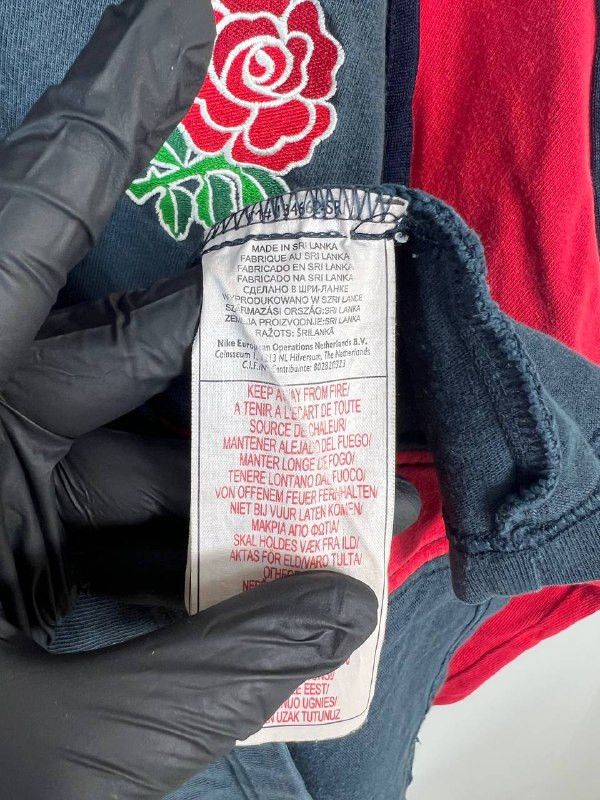 MADE IN SRI LANKA
FABRIQUE AU SRI LANKA
FABRICADO EN SRI LANKA
FABRICADO NA SRI LANKA
СДЕЛАНО В ШРИ-ЛАНКЕ
WYPRODUKOWANO W SZRI LANCE
SZÁRMAZÁSI ORSZÁG:SRI LANKA
ZEMLJA PROIZVODNJE:SRI LANKA
RAŽOTS: ŠRILANKĀ
Nike European Operations Netherlands B.V.
Colosseum 1, 1213 NL Hilversum, The Netherlands
C.I.F./N° Contribuinte: 802820323
KEEP AWAY FROM FIRE/
A TENIR A L'ECART DE TOUTE
SOURCE DE CHALEUR/
MANTENER ALEJADO DEL FUEGO/
MANTER LONGE DE FOGO/
TENERE LONTANO DAL FUOCO/
VON OFFENEM FEUER FERNHALTEN/
NIET BIJ VUUR LATEN KOMEN/
ΜΑΚΡΙΑ ΑΠΟ ΦΩΤΙΑ/
SKAL HOLDES VÆK FRA ILD/
AKTAS FÖR ELD/VARO TULTA/
EEST/
NUO UGNIES/
UZAK TUTUNUZ